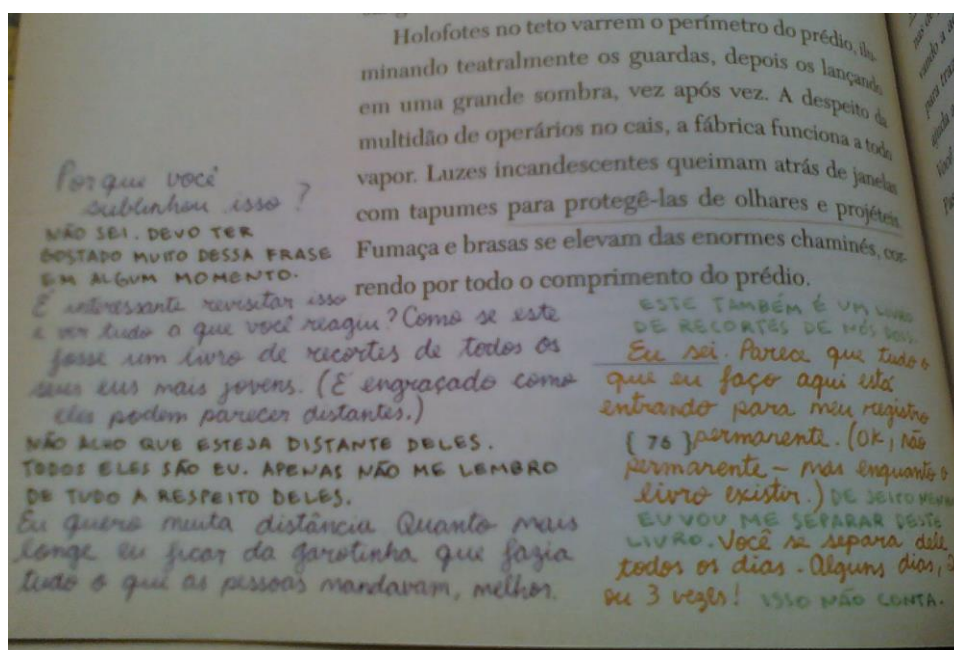 Holofotes no teto varrem o perímetro do prédio, ilu-
minando teatralmente os guardas, depois os lançando
em uma grande sombra, vez após vez. A despeito da
multidão de operários no cais, a fábrica funciona a todo
vapor. Luzes incandescentes queimam atrás de janelas
com tapumes para protegê-las de olhares e projéteis.
Fumaça e brasas se elevam das enormes chaminés, cor-
rendo por todo o comprimento do prédio.
Por que você
sublinhou isso?
NÃO SEI. DEVO TER
GOSTADO MUITO DESSA FRASE
EM ALGUM MOMENTO.
É interessante revisitar isso
e ver tudo o que você reagiu? Como se este
fosse um livro de recortes de todos os
seus eus mais jovens. (É engraçado como
eles podem parecer distantes.)
NÃO ACHO QUE ESTEJA DISTANTE DELES.
TODOS ELES SÃO EU. APENAS NÃO ME LEMBRO
DE TUDO A RESPEITO DELES.
Eu quero muita distância Quanto mais
longe eu ficar da garotinha que fazia
tudo o que as pessoas mandavam, melhor.
ESTE TAMBÉM É UM LIVRO
DE RECORTES DE NÓS DOIS.
Eu sei. Parece que tudo o
que eu faço aqui está
entrando para meu registro
{ 76 } permanente. (OK, não
permanente – mas enquanto o
livro existir.) DE JEITO NENHUM
EU VOU ME SEPARAR DESTE
LIVRO. Você se separa dele
todos os dias. Alguns dias, 2
ou 3 vezes! ISSO NÃO CONTA.